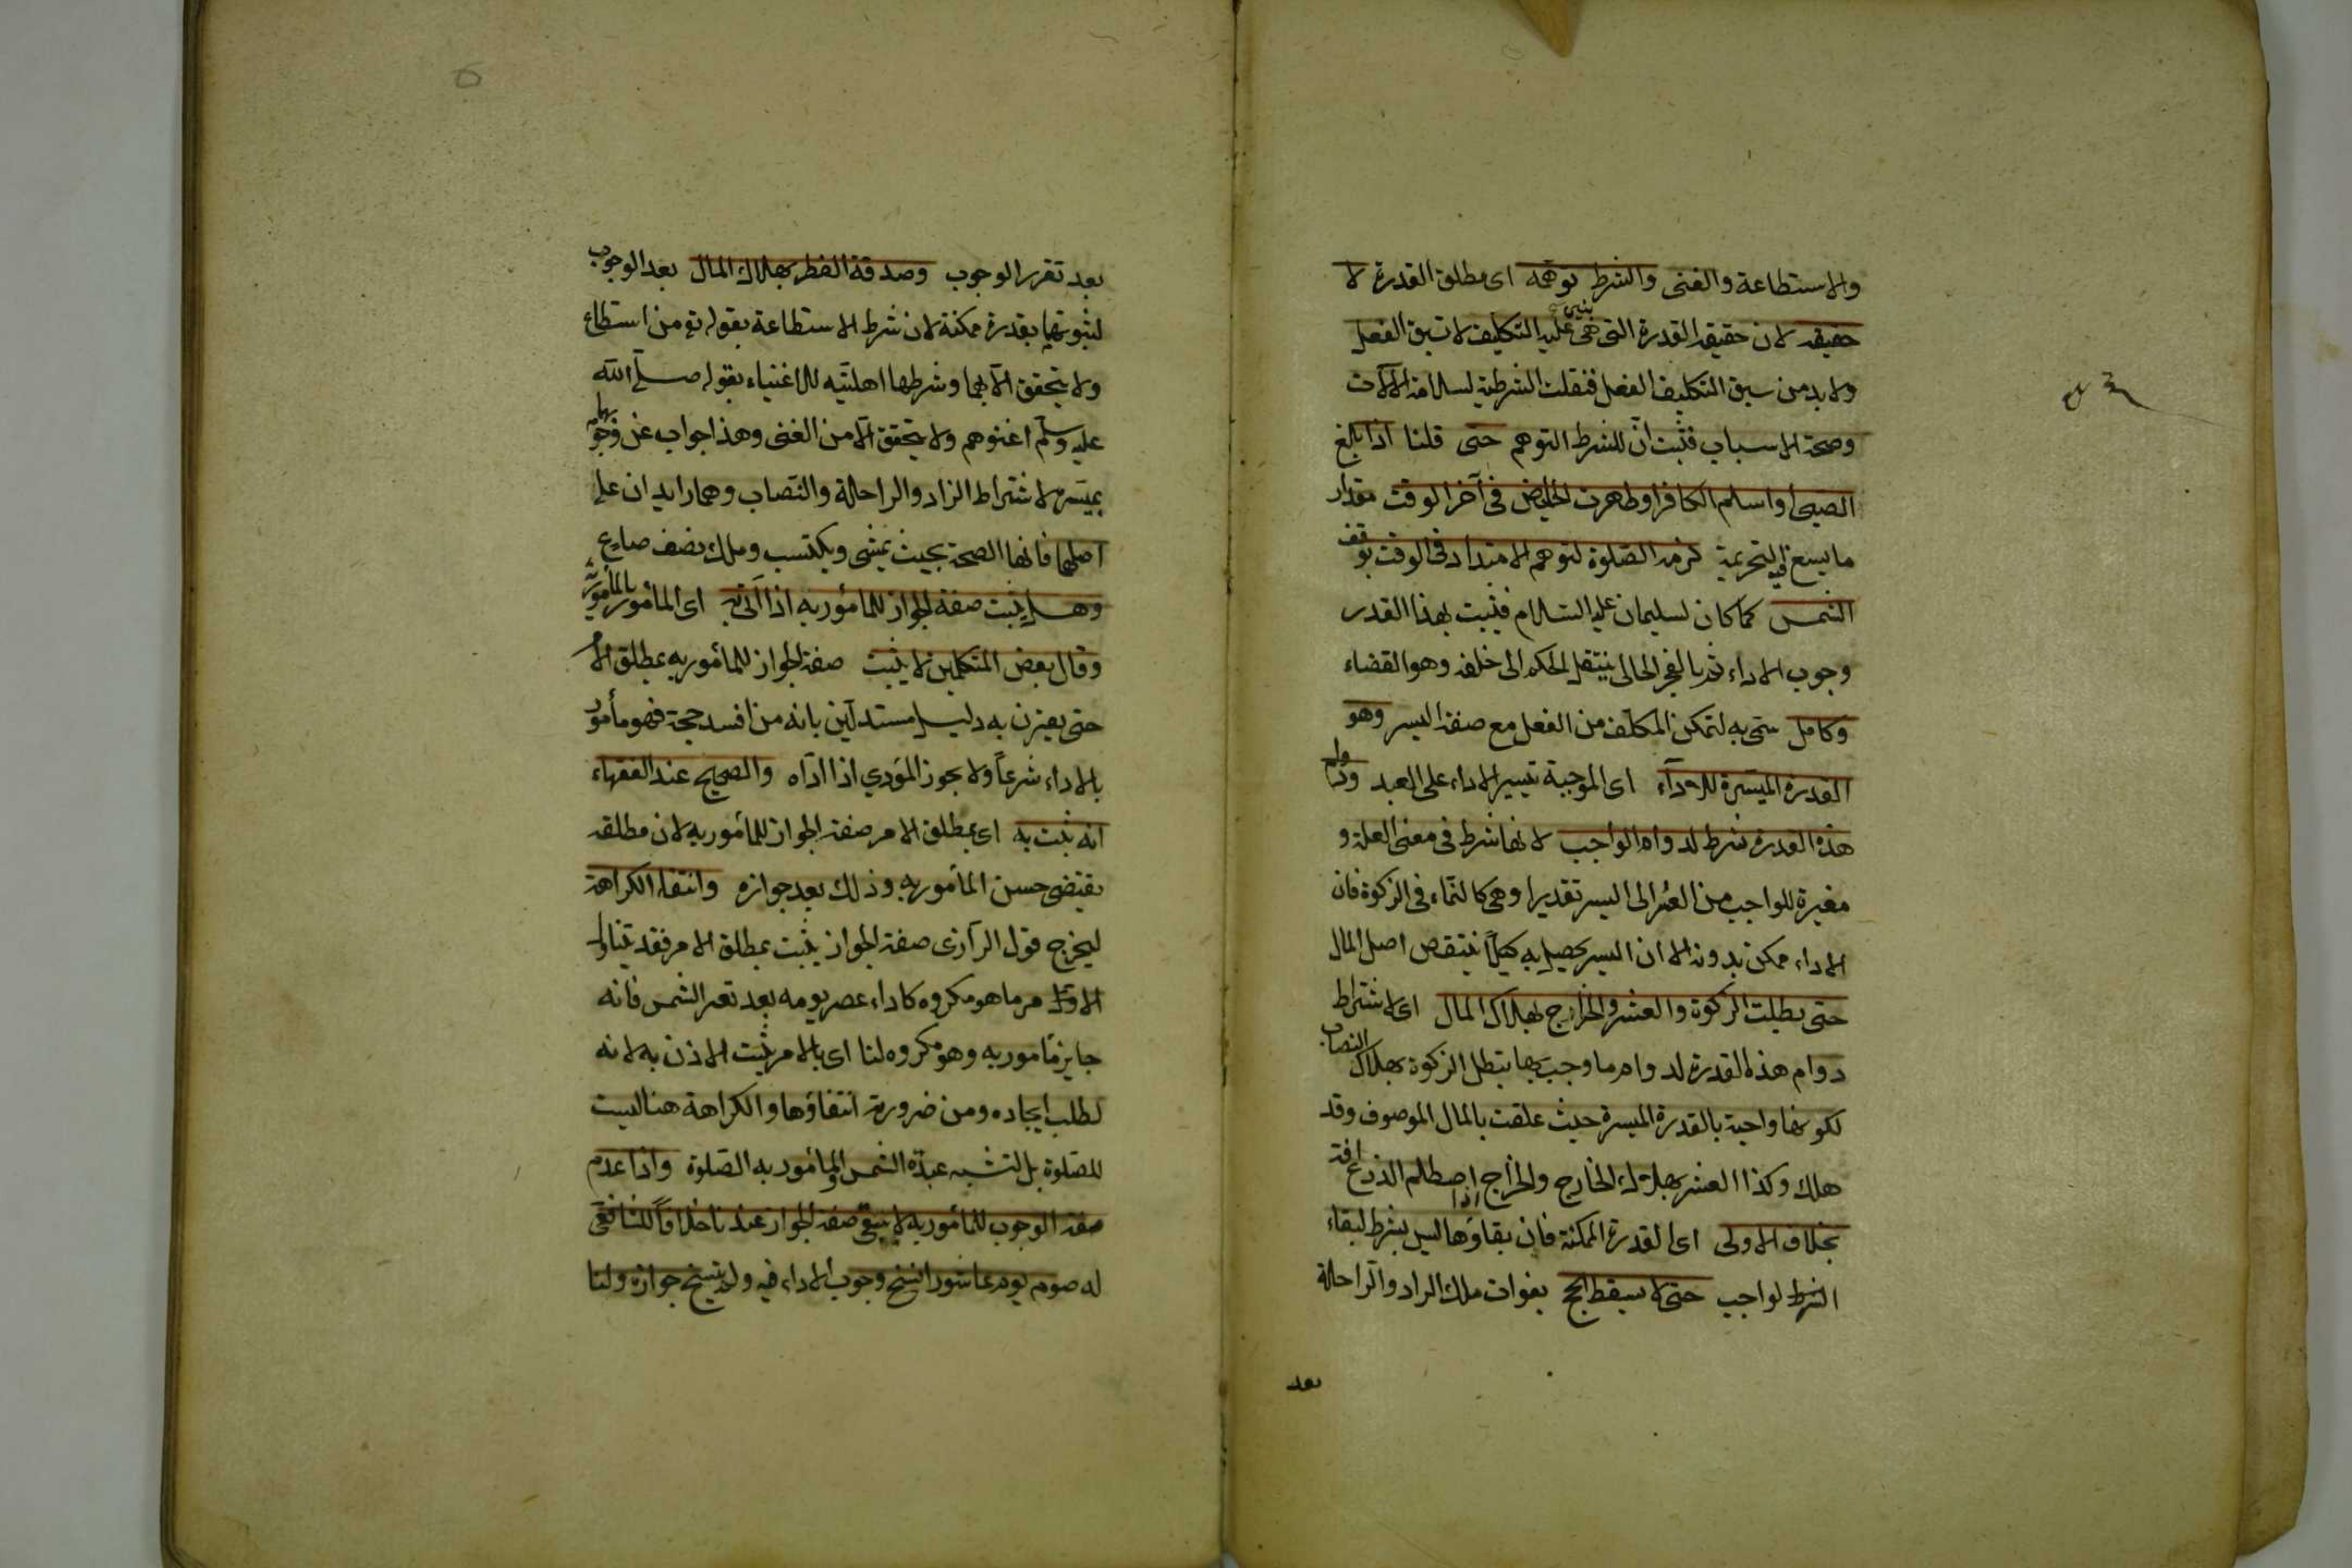 والاستطاعة والغنى والشرط توهمه اى مطلق القدرة لا
حقيقه لان حقيقة القدرة التى هى بنى عليه التكليف لا تسبق الفعل
ولا بد من سبق التكليف الفعل فنقلت الشرطية لسلامة الالات
وصحة الاسباب فثبت انّ للشرط التوهم حتى قلنا اذا بلغ
الصبى او اسلم الكافر او طهرت الحايض فى آخر الوقت مقدار
ما يسع فيه التحريمة لزمه الصّلوة لتوهم الامتداد فى الوقت بوقف
الشمس كما كان لسليمان عليه السّلام فيثبت بهذا القدر
وجوب الاداء ثم بالعجز الحالى ينتقل الحكم الى خلفه وهو القضاء
وكامل سمى به لتمكن المكلف من الفعل مع صفة اليسر وهو
القدرة الميسّرة للادآء اى الموجبة تيسير الاداء على العبد ودوام
هذه القدرة شرط لدوام الواجب لانها شرط فى معنى العلة و
مغيرة للواجب من العسر الى اليسر تقديرا وهى كالنماء فى الزكوة فان
الاداء ممكن بدونه الا ان اليسر يحصل به كيلا ينتقص اصل المال
حتى بطلت الزكوة والعشر والخراج بهلاك المال اى لاشتراط
دوام هذه القدرة لدوام ما وجب بها تبطل الزكوة بهلاك النصاب
لكونها واجبة بالقدرة الميسرة حيث علقت بالمال الموصوف وقد
هلك وكذا العشر بهلاك الخارج والخراج اذا اصطلم الذرع افة
بخلاف الاولى اى القدرة الممكنة فان بقاؤها ليس بشرط لبقاء
الشرط لواجب حتى لا يسقط الحج بفوات ملك الزاد والرّاحلة
بعد
بعد تقرر الوجوب وصدقة الفطر بهلاك المال بعد الوجوب
لثبوتهما بقدرة ممكنة لان شرط الاستطاعة بقوله تع من استطاع
ولا يتحقق الّا بهما وشرطها اهليّته للاغنياء بقوله صلى الله
عليه وسلّم اغنوهم ولا يتحقق الّا من الغنى وهذا جواب عن وجوبهما
بميسّرة لاشتراط الزاد والراحلة والنّصاب وهما زايدان على
اصلهما فانها الصحة بحيث يمشى ويكتسب وملك نصف صاع
وهل يثبت صفة الجواز للمأمور به اذا أتى به اى المأمور بالمأمور به
وقال بعض المتكلمين لا يثبت صفة الجواز للمأمور به بمطلق الامر
حتى يقترن به دليل مستدلّين بانه من افسد حجة فهو مأمور
بالاداء شرعاً ولا يجوز المؤدي اذا ادّاه والصحيح عند الفقهاء
انه يثبت به اى بمطلق الامر صفة الجواز للمأمور به لان مطلقه
يقتضى حسن المأمور به وذلك بعد جوازه وانتفاء الكراهة
ليخرج قول الرآزى صفة الجواز يثبت بمطلق الامر فقد يتناول
الامر ما هو مكروه كاداء عصر يومه بعد تغير الشمس فانه
جايز مأمور به وهو مكروه لنا اى بالامر يثبت الاذن به لانه
لطلب ايجاده ومن ضرورة انتفاؤها والكراهة هنا ليست
للصّلوة بل لتشبه عبدة الشمس والمأمور به الصّلوة واذا عدم
صفة الوجوب للمأمور به لا يبقى صفة الجواز عندنا خلافاً للشافعى
له صوم يوم عاشورا نسخ وجوب الاداء فيه ولم ينسخ جوازه ولنا